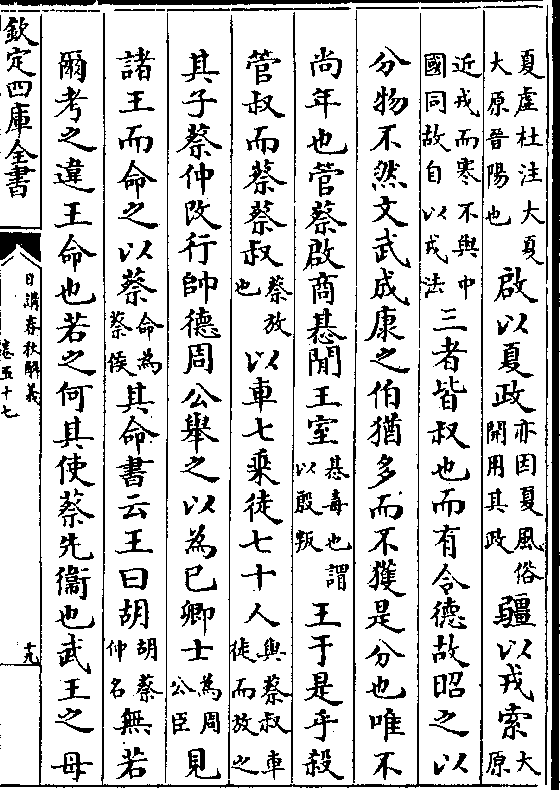 夏虛杜注大夏大原晉陽也啟以夏政亦因夏風俗開用其政疆以戎索大原
近戎而寒不與中國同故自以戎法三者皆叔也而有令德故昭之以
分物不然文武成康之伯猶多而不獲是分也唯不
尚年也管蔡啟商惎閒王室惎毒也謂以殷叛王于是乎殺
管叔而蔡蔡叔蔡放也以車七乘徒七十人與蔡叔車徒而放之
其子蔡仲改行帥德周公舉之以為己卿士為周公臣見
諸王而命之以蔡命為蔡侯其命書云王曰胡胡蔡仲名無若
爾考之違王命也若之何其使蔡先衞也武王之母
欽定四庫全書
日講春秋解義
卷五十七
十九